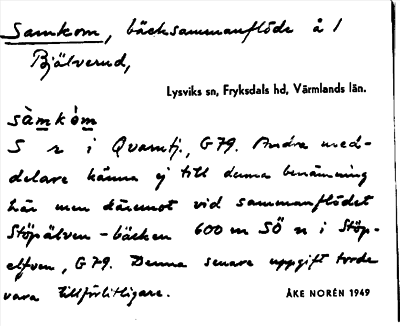 Samkom, bäcksammanflöde å 1
Bjälverud,
Lysviks sn, Fryksdals hd, Värmlands län.
sàmkòm
S r i Qvarntj., G79. Andra med-
delare känna ej till denna benämning
här men däremot vid sammanflödet
Stöpälven - bäcken 600 m SÖ n i Stöp-
elfven, G79. Denna senare uppgift torde
vara tillförlitligare.
ÅKE NORÉN 1949